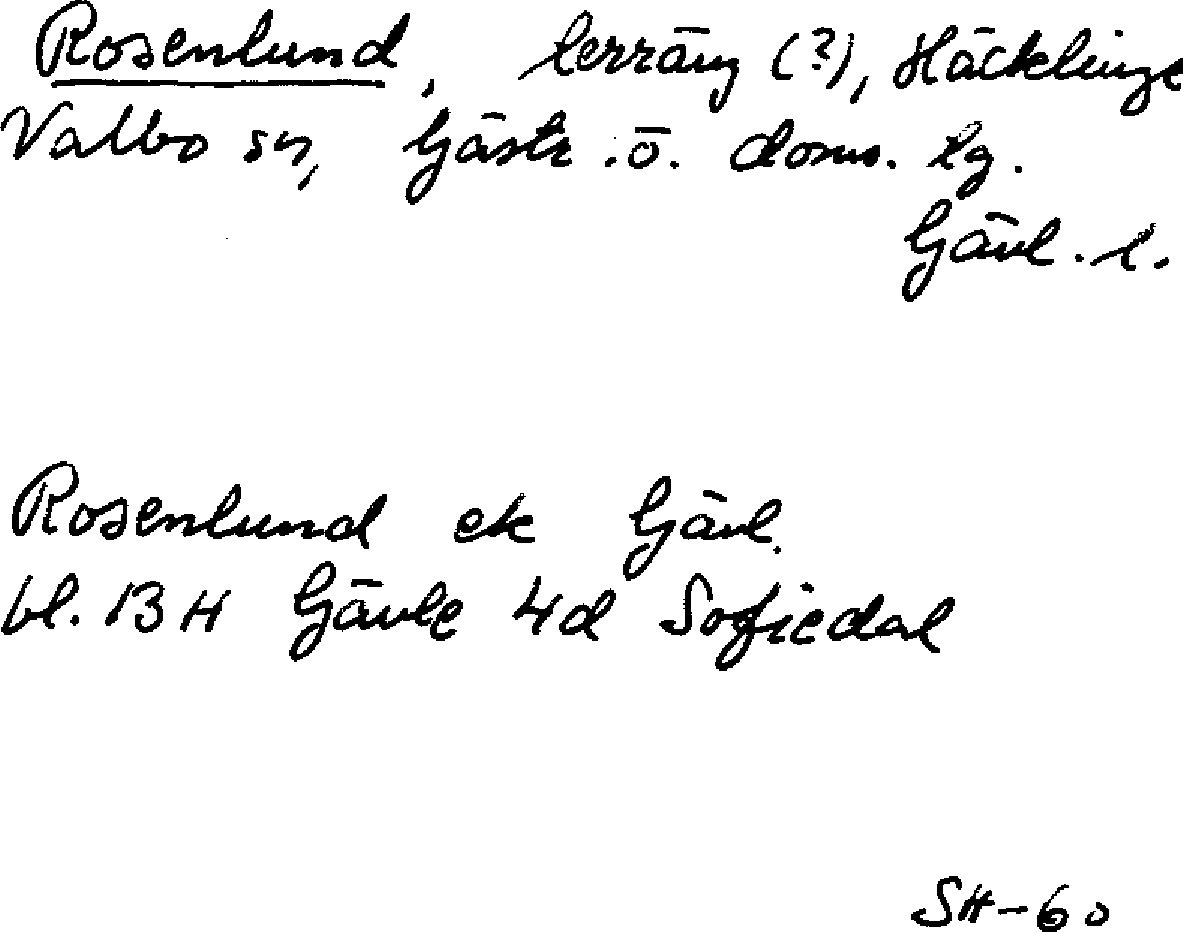 Rosenlund, terräng (?), Häcklinge
Valbo sn, Gästr. ö. doms. lg.
Gävl. l.
Rosenlund ek Gävl.
bl. 13H Gävle 4d Sofiedal
SH-60